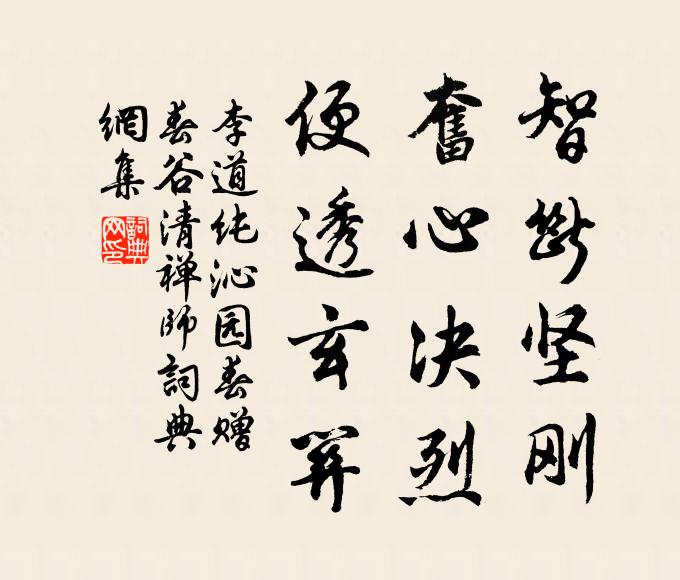 智断坚刚
奮心决烈
便透玄関
李道纯沁园春赠
春谷清禅师詞典
網集
詞典
网印